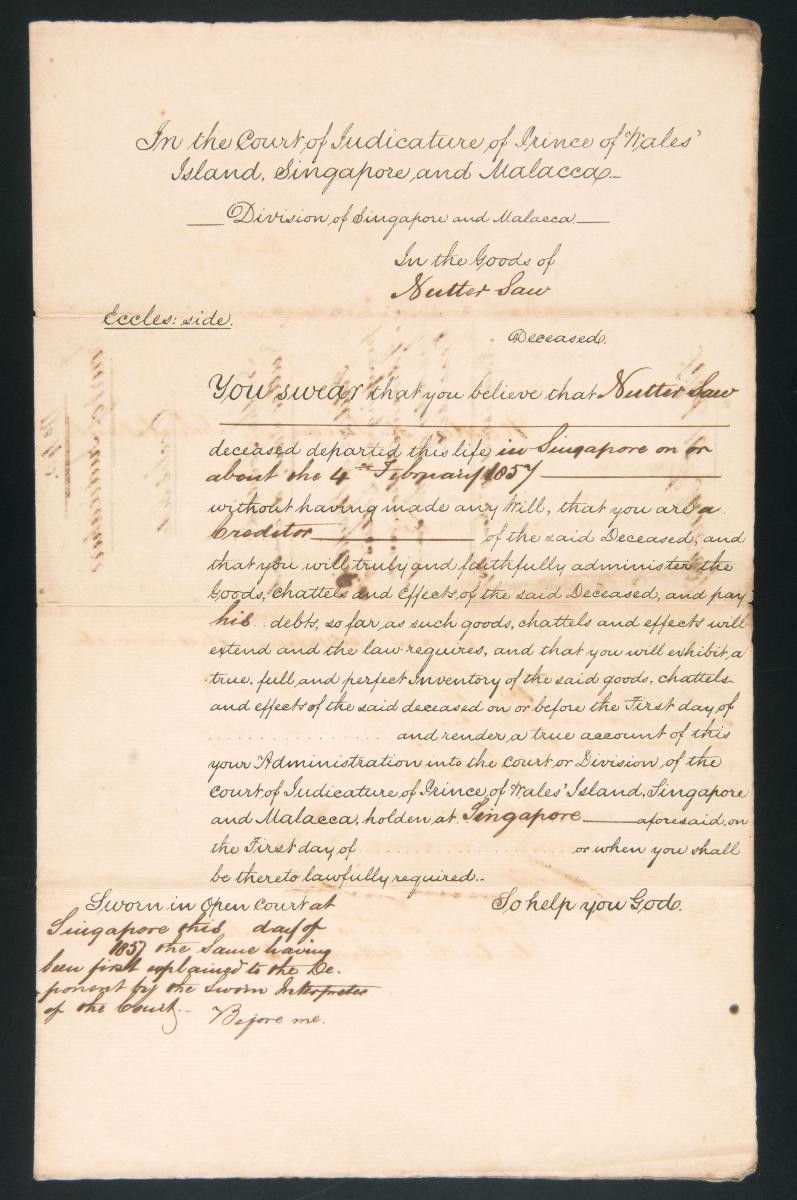 In the Court of Judicature of Prince of Wales'
Island, Singapore and Malacca
Division of Singapore and Malacca
In the Goods of
Nutter Saw
Eccles: side.
Deceased.
You swear that you believe that Nutter Saw
deceased departed this life in Singapore on or
about the 4th February 1857
without having made any Will, that you are a
Creditor of the said Deceased, and
that you will truly and faithfully administer the
Goods, chattels and Effects of the said Deceased, and pay
his debts, so far as such goods, chattels and effects will
extend and the law requires, and that you will exhibit a
true, full, and perfect Inventory of the said goods, chattels
and effects of the said deceased on or before the First day of
................. and render a true account of this
your Administration into the Court or Division of the
Court of Judicature of Prince of Wales' Island, Singapore
and Malacca, holden at Singapore aforesaid, on
the First day of ..................... or when you shall
be thereto lawfully required.
Sworn in Open Court at
So help you God.
Singapore this day of
1857 the Same having
been first explained to the De-
ponent by the Sworn Interpreter
of the Court.
Before me.